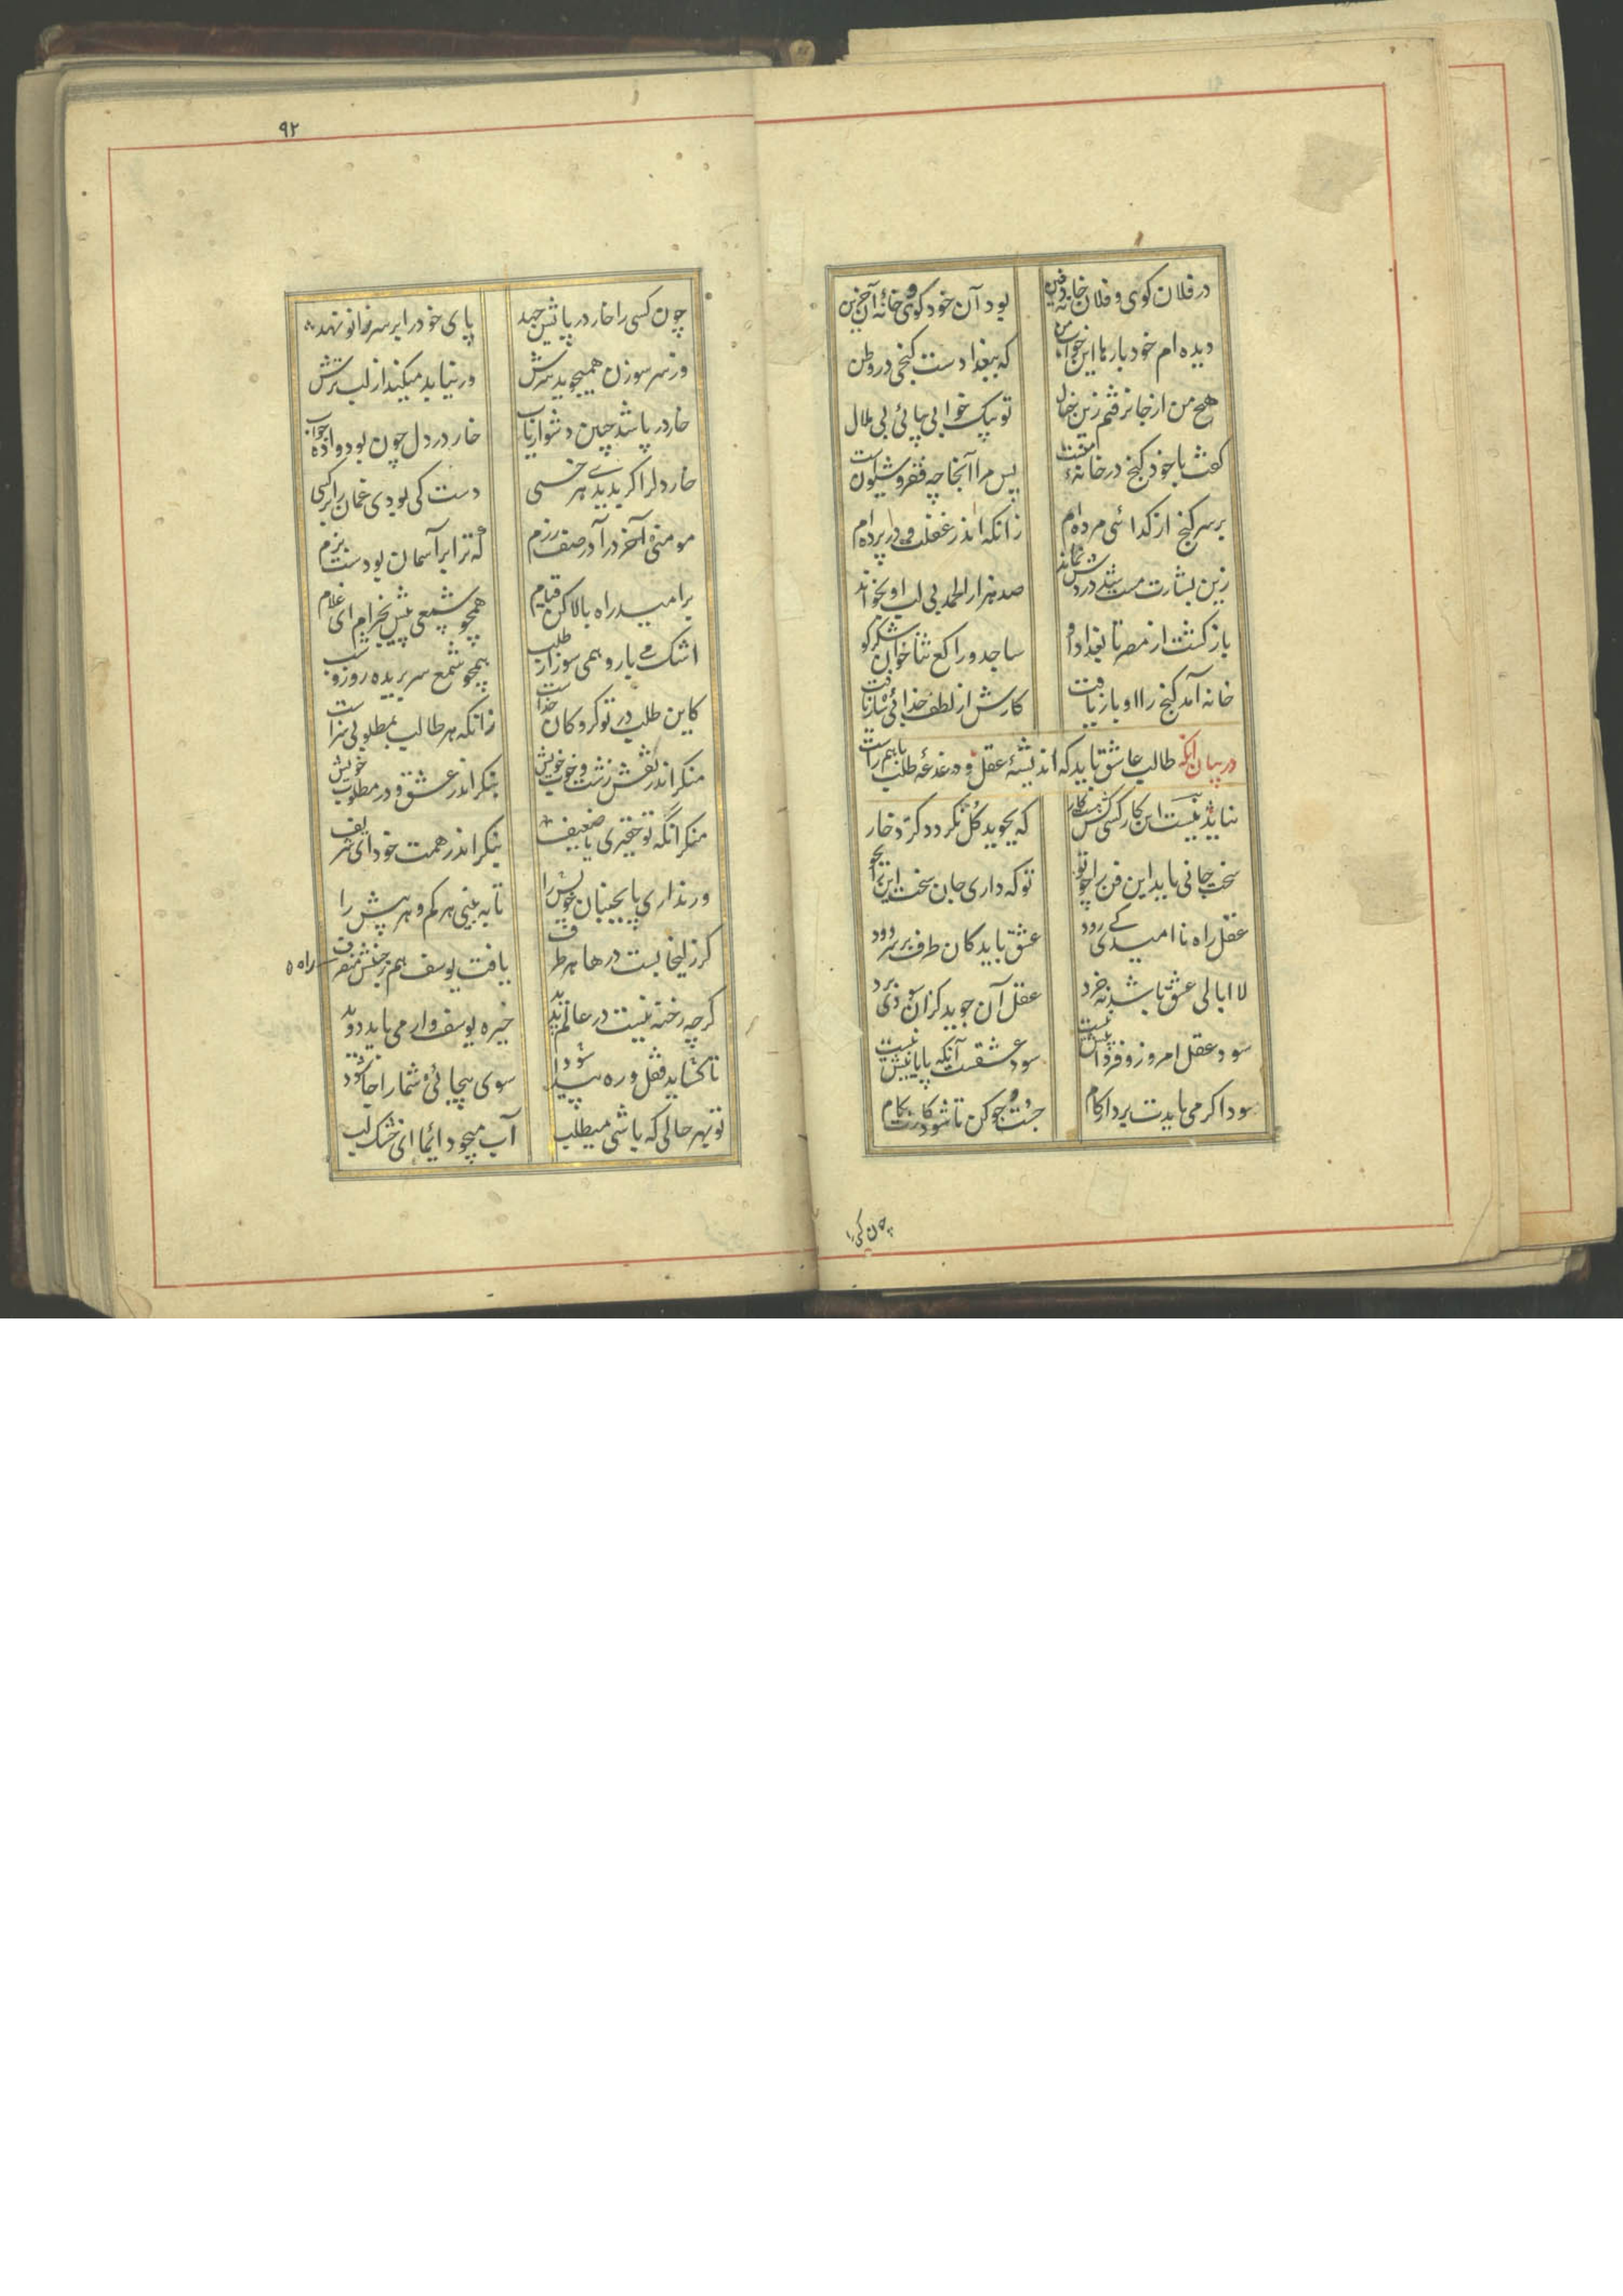 در فلان کوی و فلان خانه دفین بود آن خود کوی و خانهٔ آن حزین
دیده‌ام خود بارها این خواب من که ببغدادست گنجی در وطن
هیچ من از جا نرفتم زین خیال تو بیک خوابی بیائی بی ملال
گفت با خود گنج در خانهٔ منست پس مرا آنجا چه فقر و شیونست
بر سر گنج از گدائی مرده‌ام زانکه اندر غفلت و در پرده‌ام
زین بشارت مست شد دردش نماند صد هزار الحمد بی لب او بخواند
باز گشت از مصر تا بغداد او ساجد و راکع ثناخوان شکر گو
خانه آمد گنج را او باز یافت کارش از لطف خدائی ساز یافت
در بیان آنکه طالب عاشق باید که اندیشهٔ عقل و دغدغه طلب باهم راست
نیاید نیست این کار کسی کش هست کار که بجوید گل نگردد گرد خار
سخت جانی باید این فن را چو تو تو که داری جان سخت این را بجو
عقل راه ناامیدی کی رود عشق باید کان طرف بر سر دود
لاابالی عشق باشد نه خرد عقل آن جوید کزان سودی برد
سود عقل امروز و فردا بیش نیست سود عشقست آنکه پایانیش نیست
سود اگر می بایدت بردار گام جست و جو کن تا شود کارت بکام
چون کسی را
۹۲
چون کسی را خار در پایش جهد پای خود را بر سر زانو نهد
وز سر سوزن همیجوید سرش ور نیابد میکند از لب ترش
خار در پا شد چنین دشوار یاب خار در دل چون بود واده جواب
خار دل را گر بدیدی هر خسی دست کی بودی غمان را بر کسی
مومنی آخر درآ در صف رزم که ترا بر آسمان بودست بزم
بر امید راه بالا کن قیام همچو شمعی پیش بخرام ای غلام
اشک می بار و همی سوز از طلب همچو شمع سر بریده روز و شب
کاین طلب در تو گروگان خداست زانکه هر طالب بمطلوبی سزاست
منگر اندر نقش زشت و خوب خویش بنگر اندر عشق و در مطلوب خویش
منگر آنکه تو حقیری یا ضعیف بنگر اندر همت خود ای شریف
ور نداری پا بجنبان خویش را تا به بینی هر کم و هر بیش را
گر زلیخا بست درها هر طرف یافت یوسف هم ز جنبش منصرف
راه
گرچه رخنه نیست در عالم پدید خیره یوسف وار می باید دوید
تا گشاید قفل و ره پیدا شود سوی بیجائی شما را جا شود
تو بهر حالی که باشی میطلب آب میجو دائما ای خشک لب